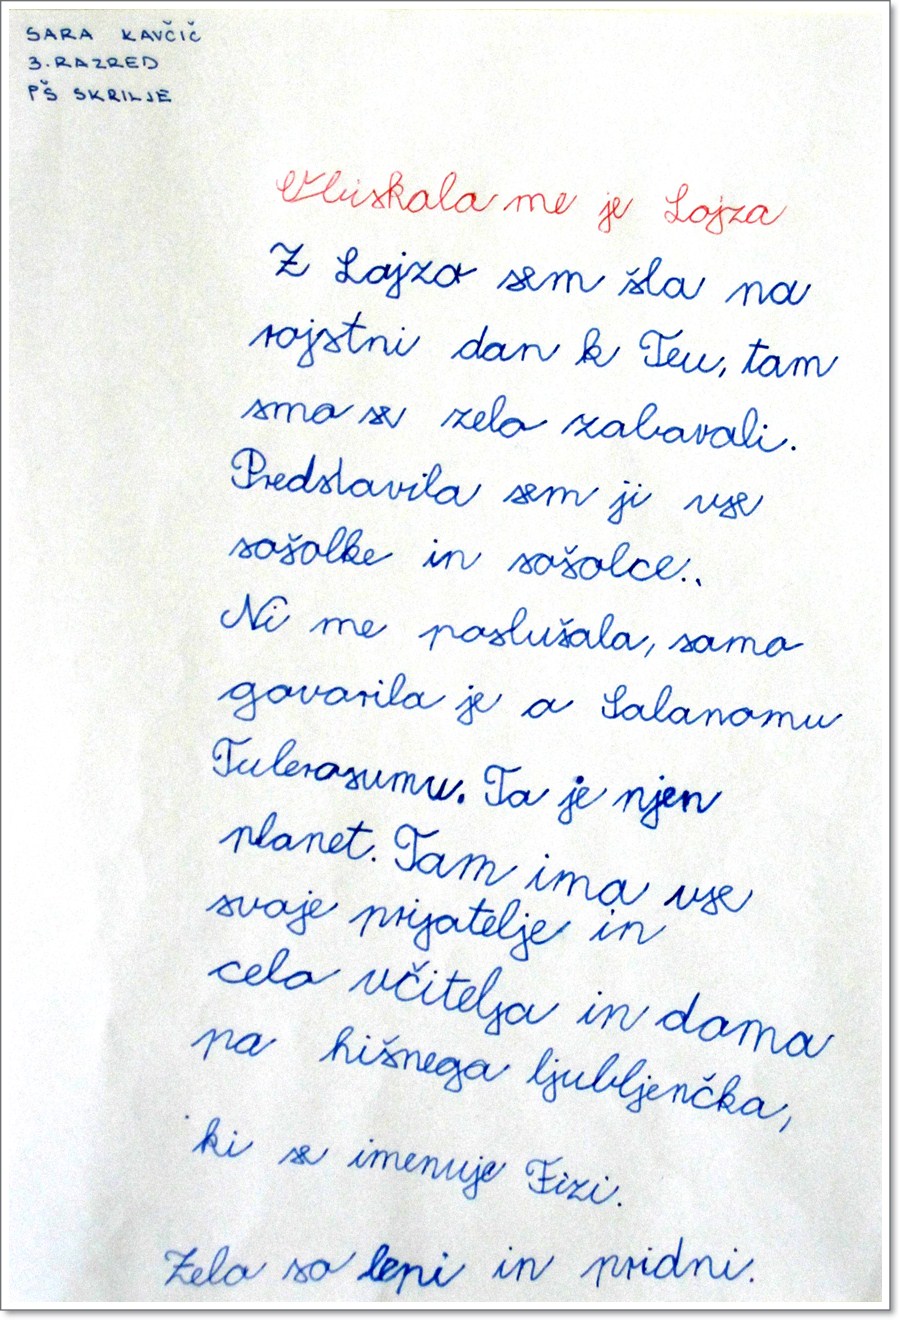 SARA KAVČIČ
3. RAZRED
PŠ SKRILJE
Obiskala me je Lojza
Z Lojzo sem šla na
rojstni dan k Teu, tam
smo se zelo zabavali.
Predstavila sem ji vse
sošolke in sošolce..
Ni me poslušala, samo
govorila je o Salanomu
Tulerosumu. To je njen
planet. Tam ima vse
svoje prijatelje in
celo učitelja in doma
pa hišnega ljubljenčka,
ki se imenuje Fizi.
Zelo so lepi in pridni.